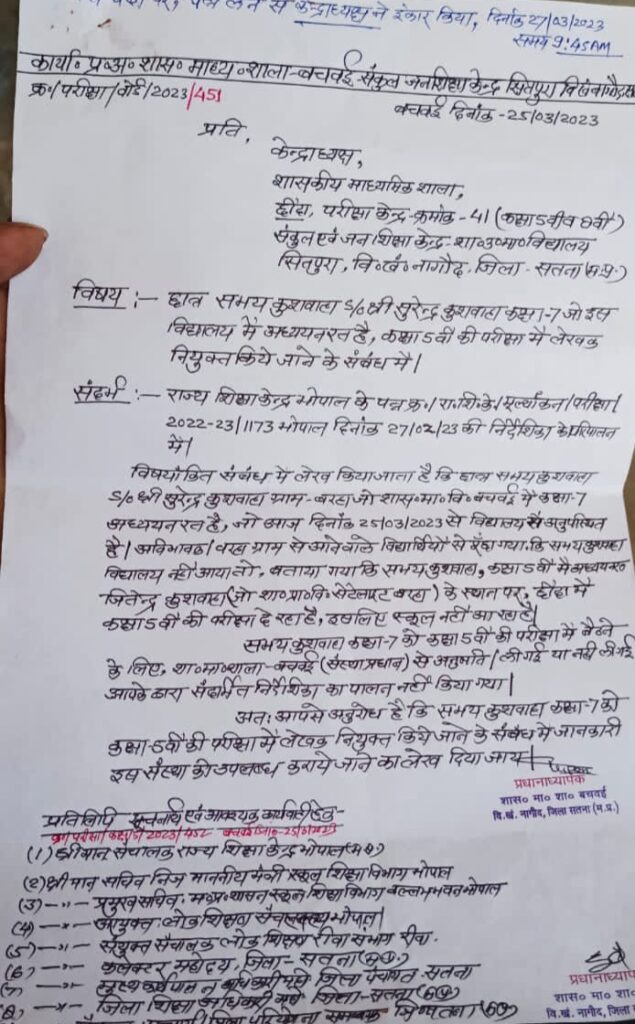 पत्र लेने से केन्द्राध्यक्ष ने इंकार किया, दिनांक 27/03/2023
समय 9:45AM
कार्या० प्र०अ० शास० माध्य० शाला-बचवई संकुल जनशिक्षा केन्द्र सितपुरा वि०खं०नागौद,सतना
क्र०/परीक्षा/बोर्ड/2023/451
बचवई दिनांक-25/03/2023
प्रति,
केन्द्राध्यक्ष,
शासकीय माध्यमिक शाला,
हौंदा, परीक्षा केन्द्र-क्रमांक-41 (कक्षा 5वीं व 8वीं)
संकुल एवं जन शिक्षा केन्द्र-शा०उ०मा०विद्यालय
सितपुरा, वि०खं० नागौद, जिला-सतना(म.प्र.)
विषय :- छात्र समय कुशवाहा S/० श्री सुरेन्द्र कुशवाहा कक्षा-7 जो इस
विद्यालय में अध्ययनरत है, कक्षा 5वीं की परीक्षा में लेखक
नियुक्त किये जाने के संबंध में।
संदर्भ :- राज्य शिक्षा केन्द्र भोपाल के पत्र क्र०/रा०शि०के०/मूल्यांकन/परीक्षा/
2022-23/1173 भोपाल दिनांक 27/02/23 की निर्देशिका के परिपालन
में।
विषयांकित संबंध में लेख किया जाता है कि छात्र समय कुशवाहा
S/० श्री सुरेन्द्र कुशवाहा ग्राम-बरहा जो शास०मा०वि०बचवई में कक्षा-7
अध्ययनरत है, जो आज दिनांक 25/03/2023 से विद्यालय से अनुपस्थित
है। अविभावक/बरहा ग्राम से आने वाले विद्यार्थियों से पूँछा गया. कि समय कुशवाहा
विद्यालय नहीं आया तो, बताया गया कि समय कुशवाहा, कक्षा 5वीं में अध्ययनरत
जितेन्द्र कुशवाहा(जो शा०प्रा०वि०सेटेलाइट बरहा) के स्थान पर, हौंदा में
कक्षा 5वीं की परीक्षा दे रहा है, इसलिए स्कूल नहीं आ रहा है।
समय कुशवाहा कक्षा-7 को कक्षा 5वीं की परीक्षा में बैठने
के लिए, शा०मा०शाला-बचवई (संस्था प्रधान) से अनुमति/ ली गई या नहीं ली गई
आपके द्वारा संदर्भित निर्देशिका का पालन नहीं किया गया।
अत: आपसे अनुरोध है कि समय कुशवाहा कक्षा-7 को
कक्षा-5वीं की परीक्षा में लेखक नियुक्त किये जाने के संबंध में जानकारी
इस संस्था को उपलब्ध कराये जाने का लेख दिया जाय।
प्रधानाध्यापक
शास० मा० शा० बचवई
वि.खं. नागौद, जिला सतना (म.प्र.)
प्रतिलिपि सूचनार्थ एवं आवश्यक कार्यवाही हेतु-
2023/452 बचवई 25/3/2023
(1) श्रीमान संचालक राज्य शिक्षा केन्द्र भोपाल(म०प्र०)
(2) श्रीमान सचिव निज माननीय मंत्री स्कूल शिक्षा विभाग भोपाल
(3) —"— प्रमुख सचिव. म०प्र०शासन स्कूल शिक्षा विभाग बल्लभ भवन भोपाल
(4) —"— आयुक्त लोक शिक्षण संचालनालय भोपाल।
(5) —"— संयुक्त संचालक लोक शिक्षण रीवा संभाग रीवा.
(6) —"— कलेक्टर महोदय, जिला-सतना(म०प्र०)
(7) —"— मुख्य कार्यपालन अधिकारी जिला पंचायत सतना
(8) —"— जिला शिक्षा अधिकारी जिला-सतना(म०प्र०)
जिला परियोजना समन्वयक सतना(म०प्र०)
प्रधानाध्यापक
शास० मा० शा०
वि.खं. नागौद, जिला